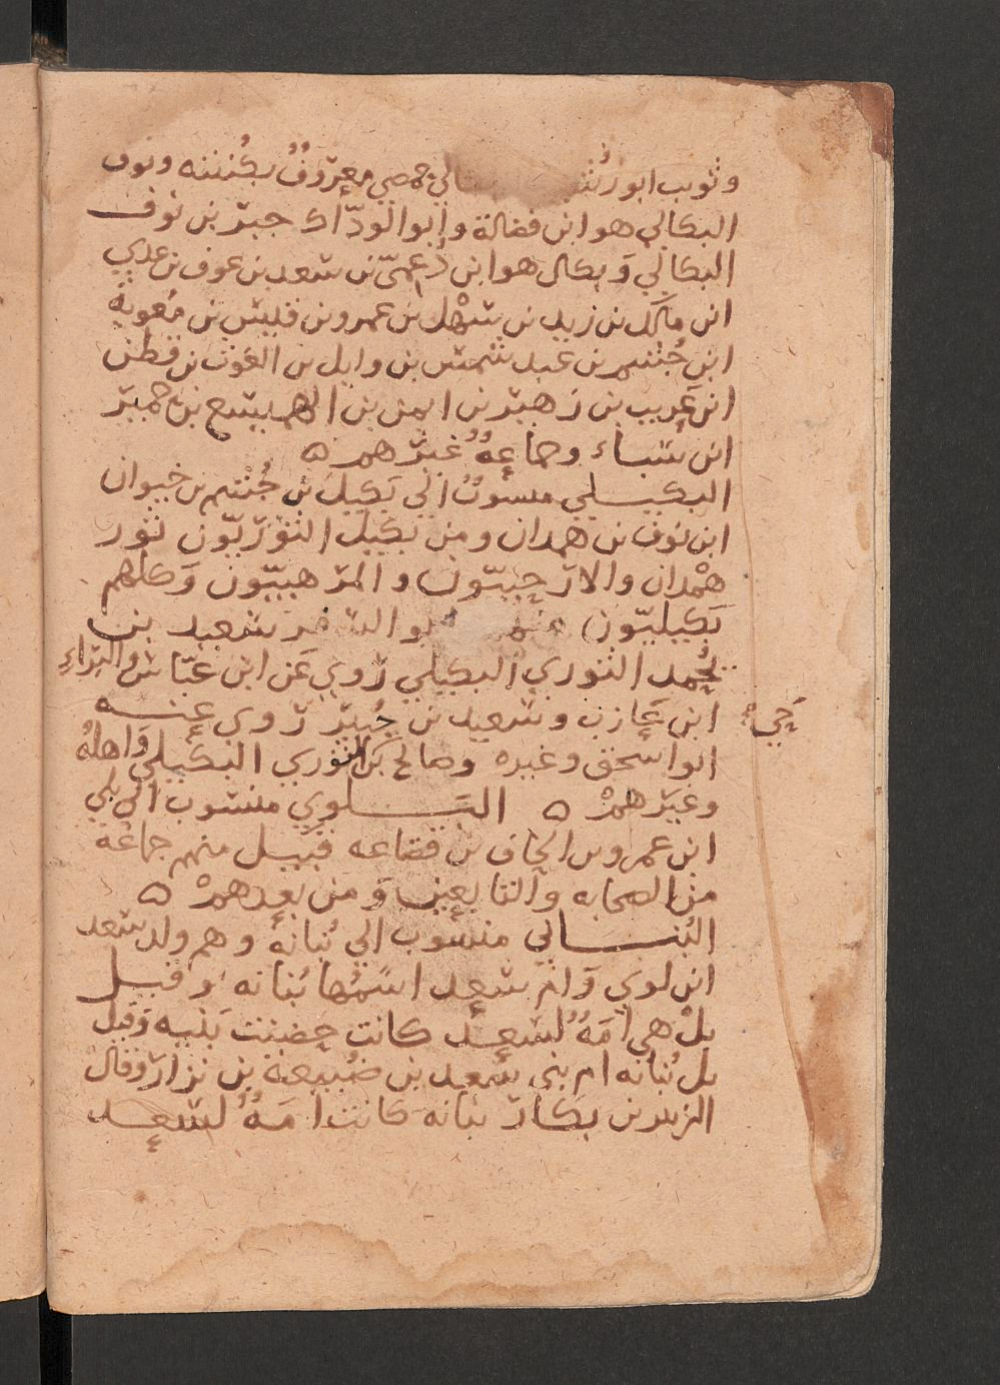 وثويب ابو رشيد الي حمصي معروف بكنيته ونوف
البكالي هو ابن فضالة وابو الودّاك جبر بن نوف
البكالي وبكال هو ابن دعمىّ بن سعد بن عوف بن عدي
ابن مالك بن زيد بن سهل بن عمرو بن قيس بن معوية
ابن جُشم بن عبد شمس بن وايل بن الغوث بن قطن
ابن عَرِيب بن زهير بن ايمن بن الهميسع بن حمير
ابن سباء وجماعةٌ غيرهم ه
البكيلي منسوبٌ الي بَكِيل بن جُشم بن خيوان
ابن نوف بن همدان ومن بكيل الثوريّون ثور
همْدان والارحبيّون والمرهبيّون وكلهم
بَكِيليّون منهم ابو السفر سعيد بن
يُحْمد الثوري البكيلي روي عن ابن عبّاس والبراءِ
ابن عازب وسعيد بن جُبير روي عنه
ابو اسحق وغيره وصالح بن حي الثوري البكيلي واهلهُ
وغيرهمْ ه البَلوي منسوب الي بلي
ابن عمرو بن الحاف بن قضاعه قبيل منهم جماعة
من الصحابه والتابعين ومن بعدهمْ ه
البُناني منسوب الي بُنانة وهم ولد سعد
ابن لوي وام سعد اسمُها بُنانه وقيل
بلْ هي امَةٌ لسعد كانت حضنت بَنيه وقيل
بل بُنانه ام بني سعد بن ضُبيعة بن نزار وقال
الزبير بن بكار بنانة كانت امَةً لسعد